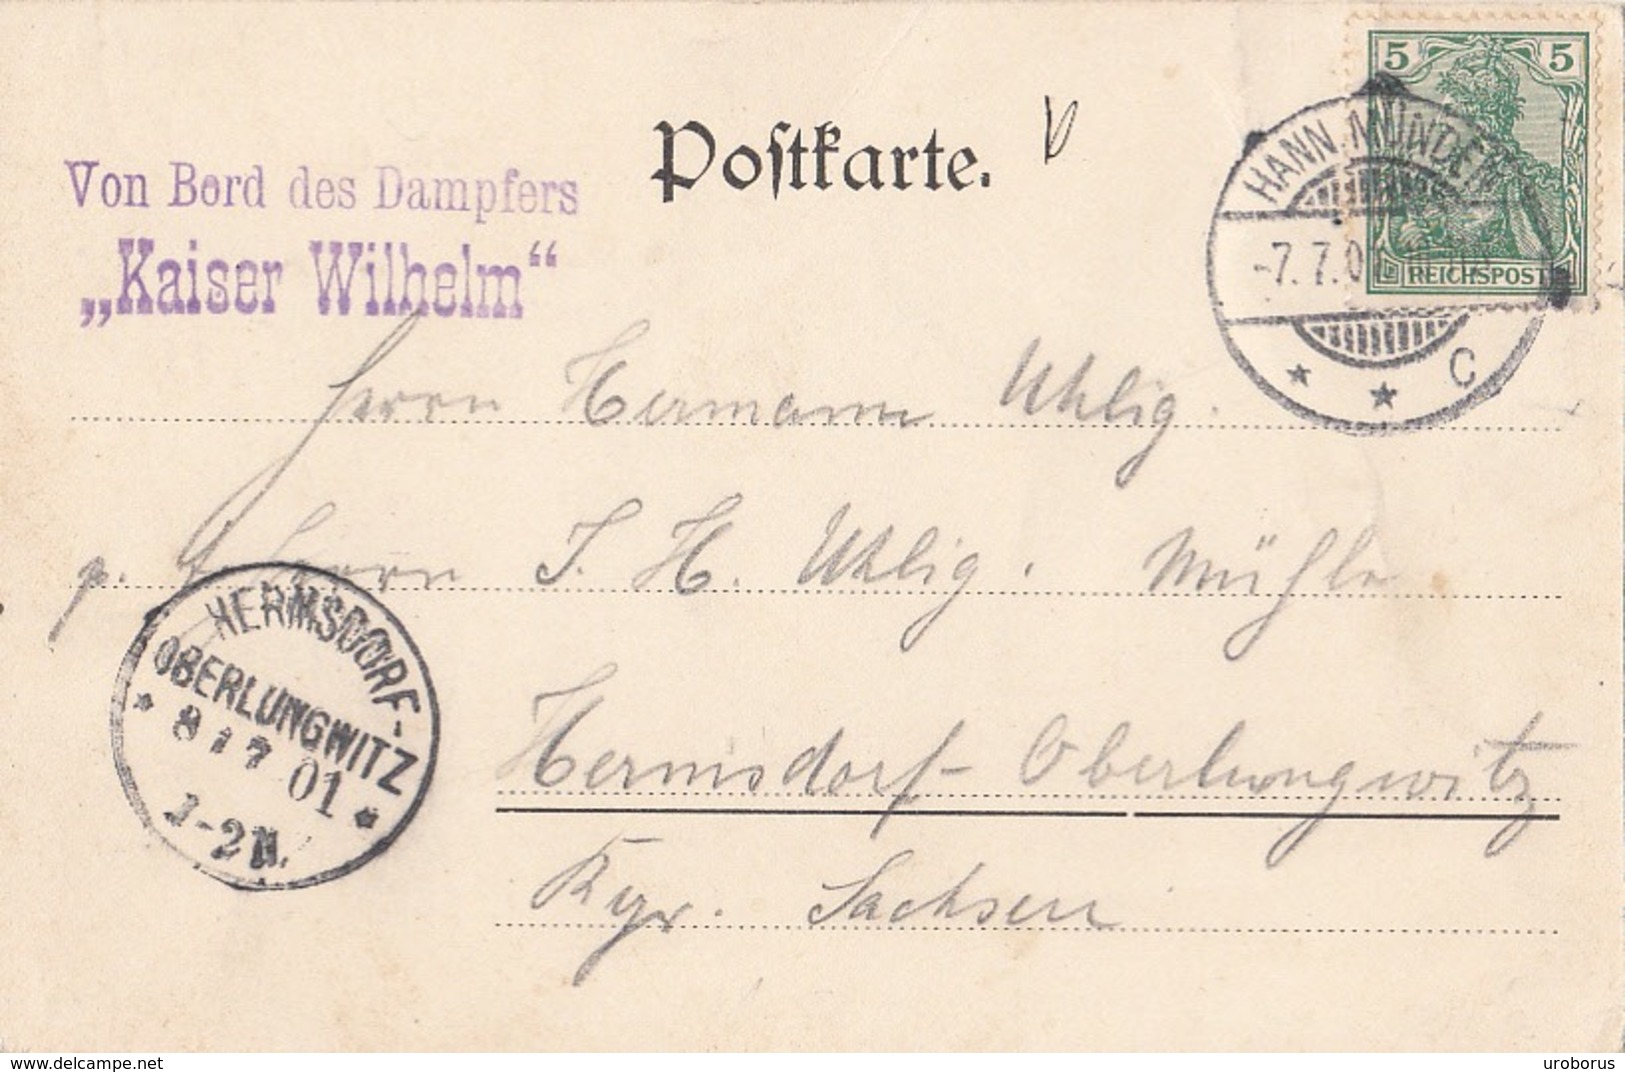 Postkarte.
Von Bord des Dampfers
„Kaiser Wilhelm“
5 5
REICHSPOST
HANN. MÜNDEN
-7. 7. 0
* * C
Herrn Hermann Uhlig.
p. Herrn J. H. Uhlig. Mühle
Hermsdorf-Oberlungwitz
Kgr. Sachsen
HERMSDORF-
OBERLUNGWITZ
* 8 / 7 01 *
1-2N.
delcampe.net
uroborus